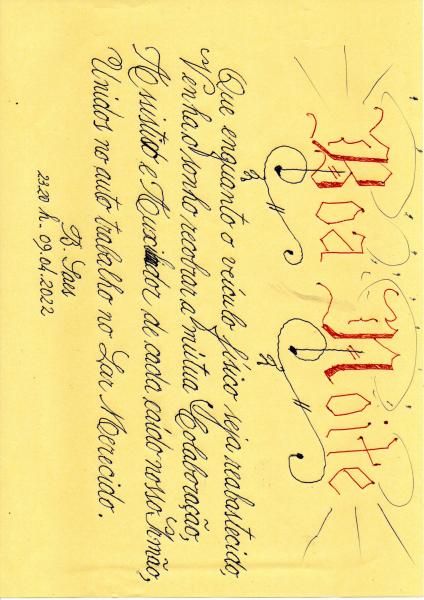 Boa Noite
Que enquanto o veículo físico seja reabastecido,
Venha o sonho recobrar a mútua Colaboração,
Assistiso e Auxiliador de cada caído nosso Irmão,
Unidos no auto trabalho no Lar Merecido.
B. Saes
23.20 h. 09.04.2022